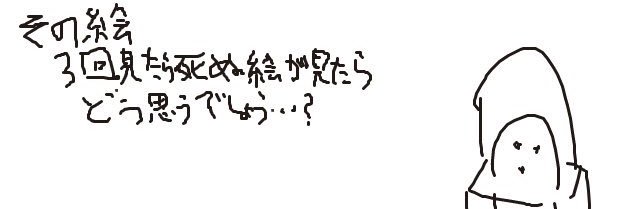 その絵
3回見たら死ぬ絵が見たら
どう思うでしょう…?